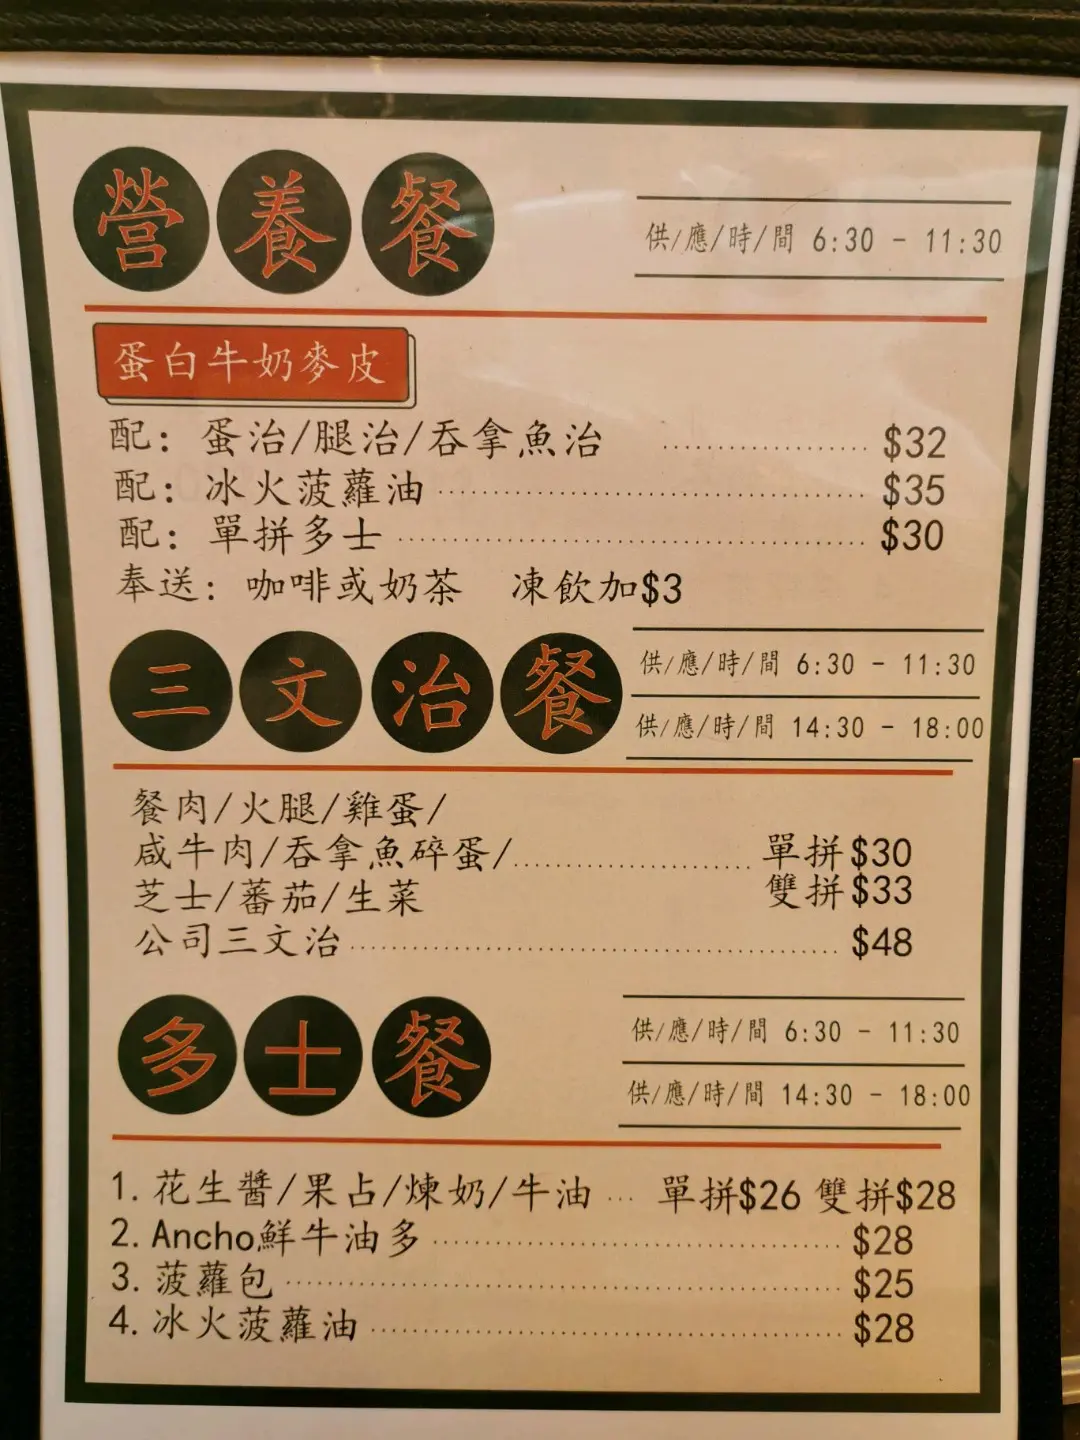 營養餐
供/應/時/間 6:30 - 11:30
蛋白牛奶麥皮
配: 蛋治/腿治/吞拿魚治 ........ $32
配: 冰火菠蘿油 ........ $35
配: 單拼多士 ........ $30
奉送: 咖啡或奶茶 凍飲加$3
三文治餐
供/應/時/間 6:30 - 11:30
供/應/時/間 14:30 - 18:00
餐肉/火腿/雞蛋/
咸牛肉/吞拿魚碎蛋/ ........ 單拼$30
芝士/蕃茄/生菜 雙拼$33
公司三文治 ........ $48
多士餐
供/應/時/間 6:30 - 11:30
供/應/時/間 14:30 - 18:00
1. 花生醬/果占/煉奶/牛油 ... 單拼$26 雙拼$28
2. Ancho鮮牛油多 ........ $28
3. 菠蘿包 ........ $25
4. 冰火菠蘿油 ........ $28